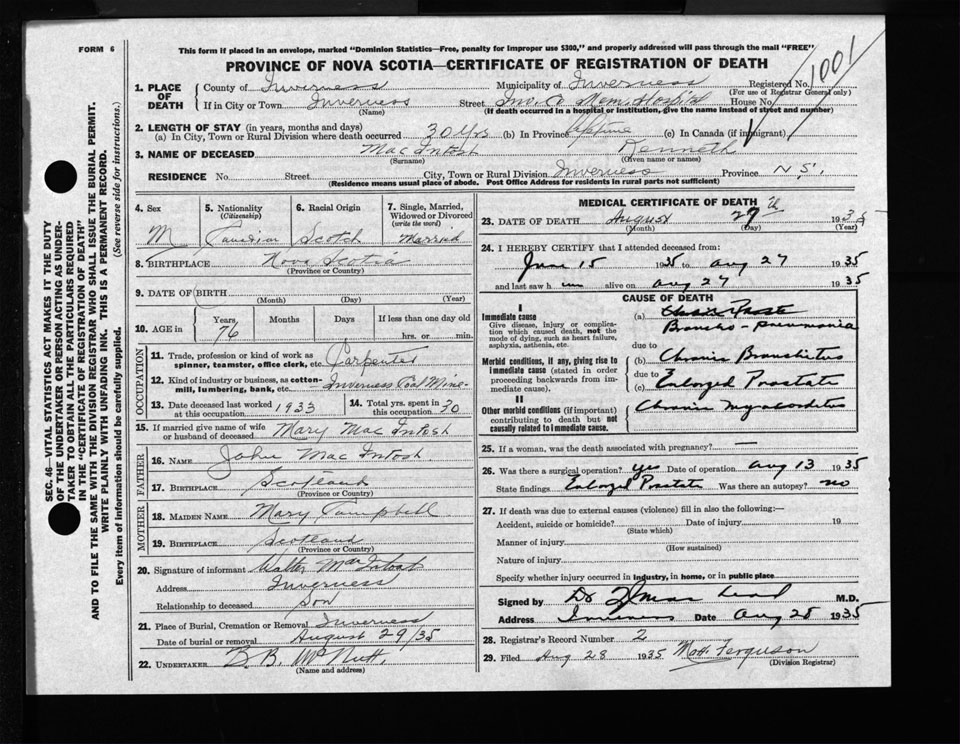 FORM 6
This form if placed in an envelope, marked "Dominion Statistics—Free, penalty for improper use $300," and properly addressed will pass through the mail "FREE"
PROVINCE OF NOVA SCOTIA—CERTIFICATE OF REGISTRATION OF DEATH
1001
SEC. 46—VITAL STATISTICS ACT MAKES IT THE DUTY
OF THE UNDERTAKER OR PERSON ACTING AS UNDER-
TAKER TO OBTAIN ALL THE PARTICULARS REQUIRED
IN THE "CERTIFICATE OF REGISTRATION OF DEATH"
AND TO FILE THE SAME WITH THE DIVISION REGISTRAR WHO SHALL ISSUE THE BURIAL PERMIT.
WRITE PLAINLY WITH UNFADING INK. THIS IS A PERMANENT RECORD.
Every item of information should be carefully supplied. (See reverse side for instructions.)
1. PLACE OF DEATH
County of Inverness Municipality of Inverness Registered No.
(For use of Registrar General only)
If in City or Town Inverness Street Mem. Hospital House No.
(Name) (If death occurred in a hospital or institution, give the name instead of street and number)
2. LENGTH OF STAY (in years, months and days)
(a) In City, Town or Rural Division where death occurred 30 yrs (b) In Province Lifetime (c) In Canada (if immigrant)
3. NAME OF DECEASED MacIntosh Kenneth
(Surname) (Given name or names)
RESIDENCE No. Street City, Town or Rural Division Inverness Province N.S.
(Residence means usual place of abode. Post Office Address for residents in rural parts not sufficient)
4. Sex M
5. Nationality (Citizenship) Canadian
6. Racial Origin Scotch
7. Single, Married, Widowed or Divorced (write the word) Married
8. BIRTHPLACE Nova Scotia
(Province or Country)
9. DATE OF BIRTH
(Month) (Day) (Year)
10. AGE in Years 76 Months Days If less than one day old hrs. or min.
OCCUPATION
11. Trade, profession or kind of work as spinner, teamster, office clerk, etc. Carpenter
12. Kind of industry or business, as cotton-mill, lumbering, bank, etc. Inverness Coal Mine
13. Date deceased last worked at this occupation 1933
14. Total yrs. spent in this occupation 30
15. If married give name of wife or husband of deceased Mary MacIntosh
FATHER
16. NAME John MacIntosh
17. BIRTHPLACE Scotland
(Province or Country)
MOTHER
18. MAIDEN NAME Mary Campbell
19. BIRTHPLACE Scotland
(Province or Country)
20. Signature of informant Walter MacIntosh
Address Inverness
Relationship to deceased Son
21. Place of Burial, Cremation or Removal Inverness
Date of burial or removal August 29/35
22. UNDERTAKER B.B. McNutt
(Name and address)
MEDICAL CERTIFICATE OF DEATH
23. DATE OF DEATH August 27 1935
(Month) (Day) (Year)
24. I HEREBY CERTIFY that I attended deceased from:
June 15 1935 to Aug 27 1935
and last saw h im alive on Aug 27 1935
CAUSE OF DEATH
I
Immediate cause
Give disease, injury or complication which caused death, not the mode of dying, such as heart failure, asphyxia, asthenia, etc.
(a) Broncho-pneumonia
due to
Morbid conditions, if any, giving rise to immediate cause (stated in order proceeding backwards from immediate cause).
(b) Chronic Bronchitis
due to
(c) Enlarged Prostate
II
Other morbid conditions (if important) contributing to death but not causally related to immediate cause.
Chronic Myocarditis
25. If a woman, was the death associated with pregnancy? —
26. Was there a surgical operation? yes Date of operation Aug 13 1935
State findings Enlarged Prostate Was there an autopsy? no
27. If death was due to external causes (violence) fill in also the following:—
Accident, suicide or homicide? Date of injury 19
(State which)
Manner of injury
(How sustained)
Nature of injury
Specify whether injury occurred in industry, in home, or in public place
Signed by Dr M.D.
Address Inverness Date Aug 28 1935
28. Registrar's Record Number 2
29. Filed Aug 28 1935 Ferguson
(Division Registrar)